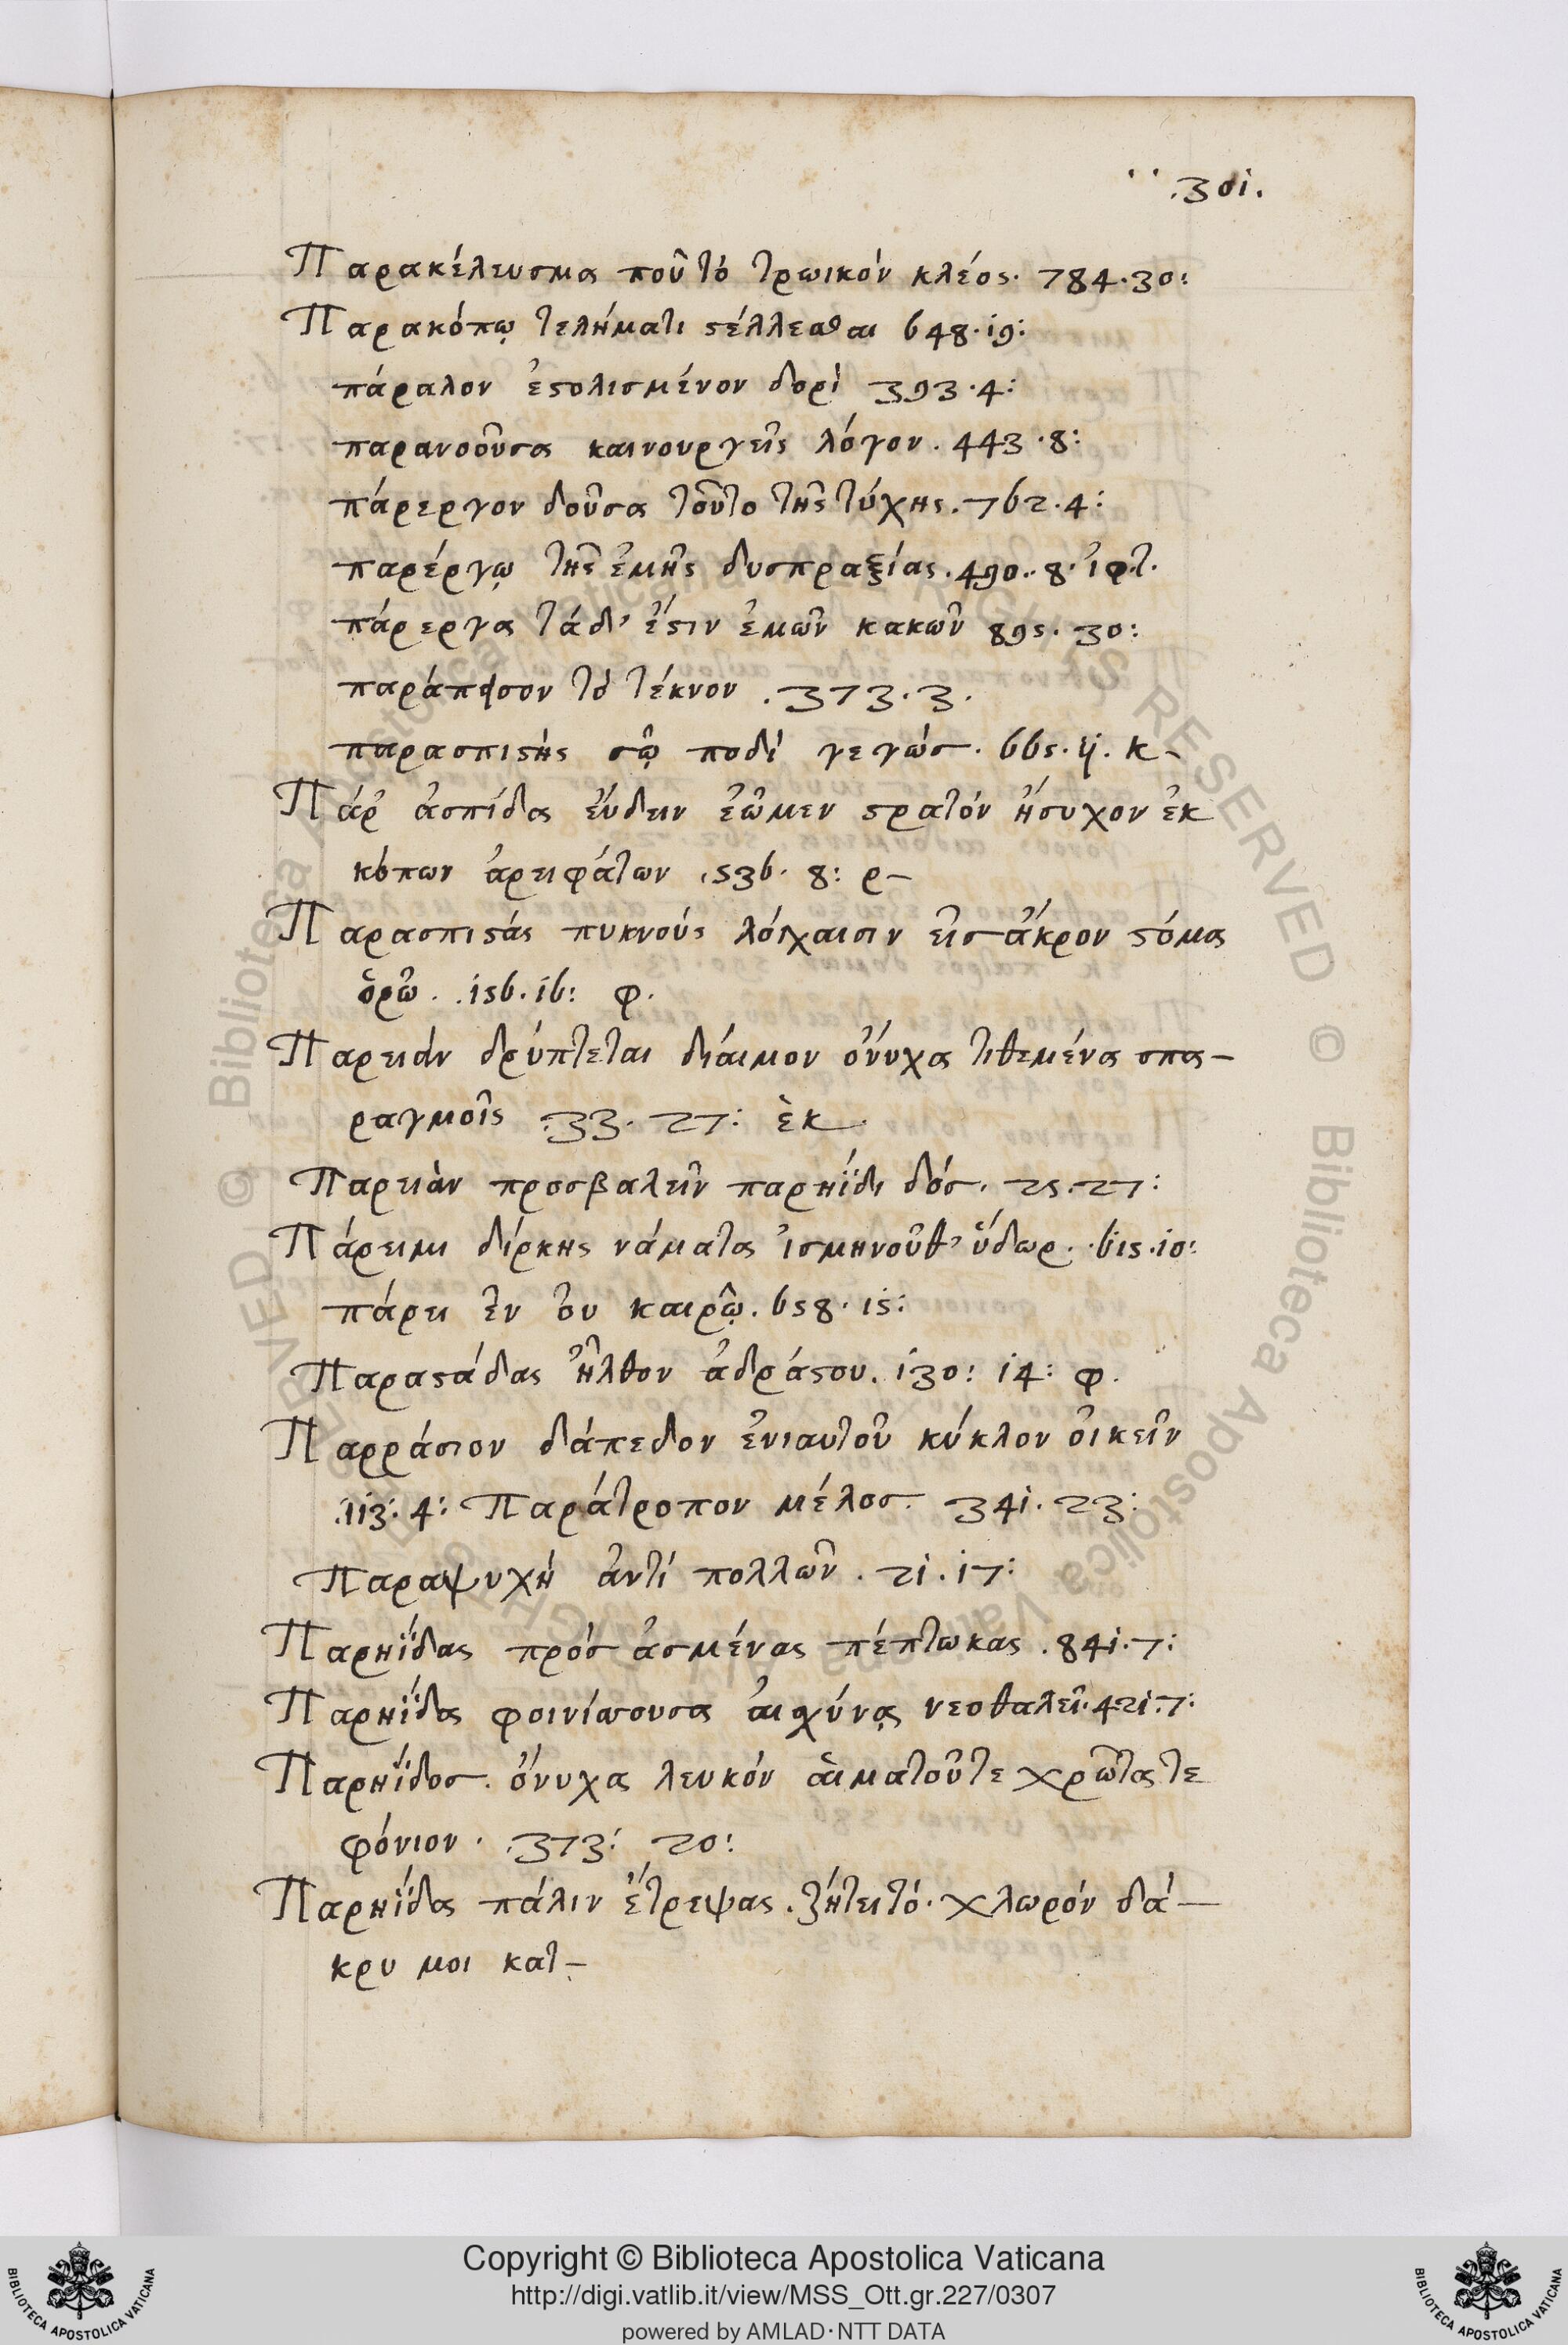 .301.
Παρακέλευσμα ποῦ τὸ τρωικὸν κλέος. 784.30:
Παρακόπῳ τελήματι ϛέλλεσθαι 648.19:
πάραλον ἐϛολισμένον δορὶ 393.4:
παρανοοῦσα καινουργεῖς λόγον. 443.8:
πάρεργον δοῦσα τοῦτο τῆς τύχης. 762.4:
παρέργῳ τῆς ἐμῆς δυσπραξίας. 490. 8. ἰφ.τ.
πάρεργα τάδ' ἔϛιν ἐμῶν κακῶν 895. 30:
τὸ τέκνον . 373.3.
παρασπιϛὴς σῷ ποδὶ γεγώσ. 665. ii. κ-
Πάρ ἀσπίδα εὕδειν ἐῶμεν ϛρατόν ἥσυχον ἐκ
κόπων ἀρειφάτων .536. 8: ρ-
Παρασπιϛὰς πυκνοὺς λόγχαισιν εἰσ ἄκρον ϛόμα
ὁρῶ. .156.16: φ.
Παρειὰν δρύπτεται δίαιμον ὄνυχα τιθεμένα σπα-
ραγμοῖς .33. 27: ἑκ.
Παρειὰν προσβαλεῖν παρηΐδι δόσ. 25.27:
Πάρειμι δίρκης νάματα ἰσμηνοῦθ' ὕδωρ. .615.10:
πάρει ἐν οὐ καιρῷ. 658. 15:
Παραϛάδας ἦλθον ἀδράϛου. 130: 14: φ.
Παρράσιον δάπεδον ἐνιαυτοῦ κύκλον οἰκεῖν
.113. 4: Παράτροπον μέλοσ. 341. 23:
Παραψυχὴ ἀντὶ πολλῶν . 21. 17:
Παρηΐδας πρὸσ ἀσμένας πέπτωκας .841.7:
Παρηΐδα φοινίσσουσα αἰσχύνᾳ νεοθαλεῖ. 421.7:
Παρηΐδοσ. ὄνυχα λευκὸν αἱματοῦτε χρῶτα τε
φόνιον . .373: 20:
Παρηΐδα πάλιν ἔτρεψας . ζήτει τό. χλωρόν δά-
κρυ μοι κατ-
Copyright © Biblioteca Apostolica Vaticana
http://digi.vatlib.it/view/MSS_Ott.gr.227/0307
powered by AMLAD·NTT DATA
BIBLIOTECA APOSTOLICA VATICANA
BIBLIOTECA APOSTOLICA VATICANA